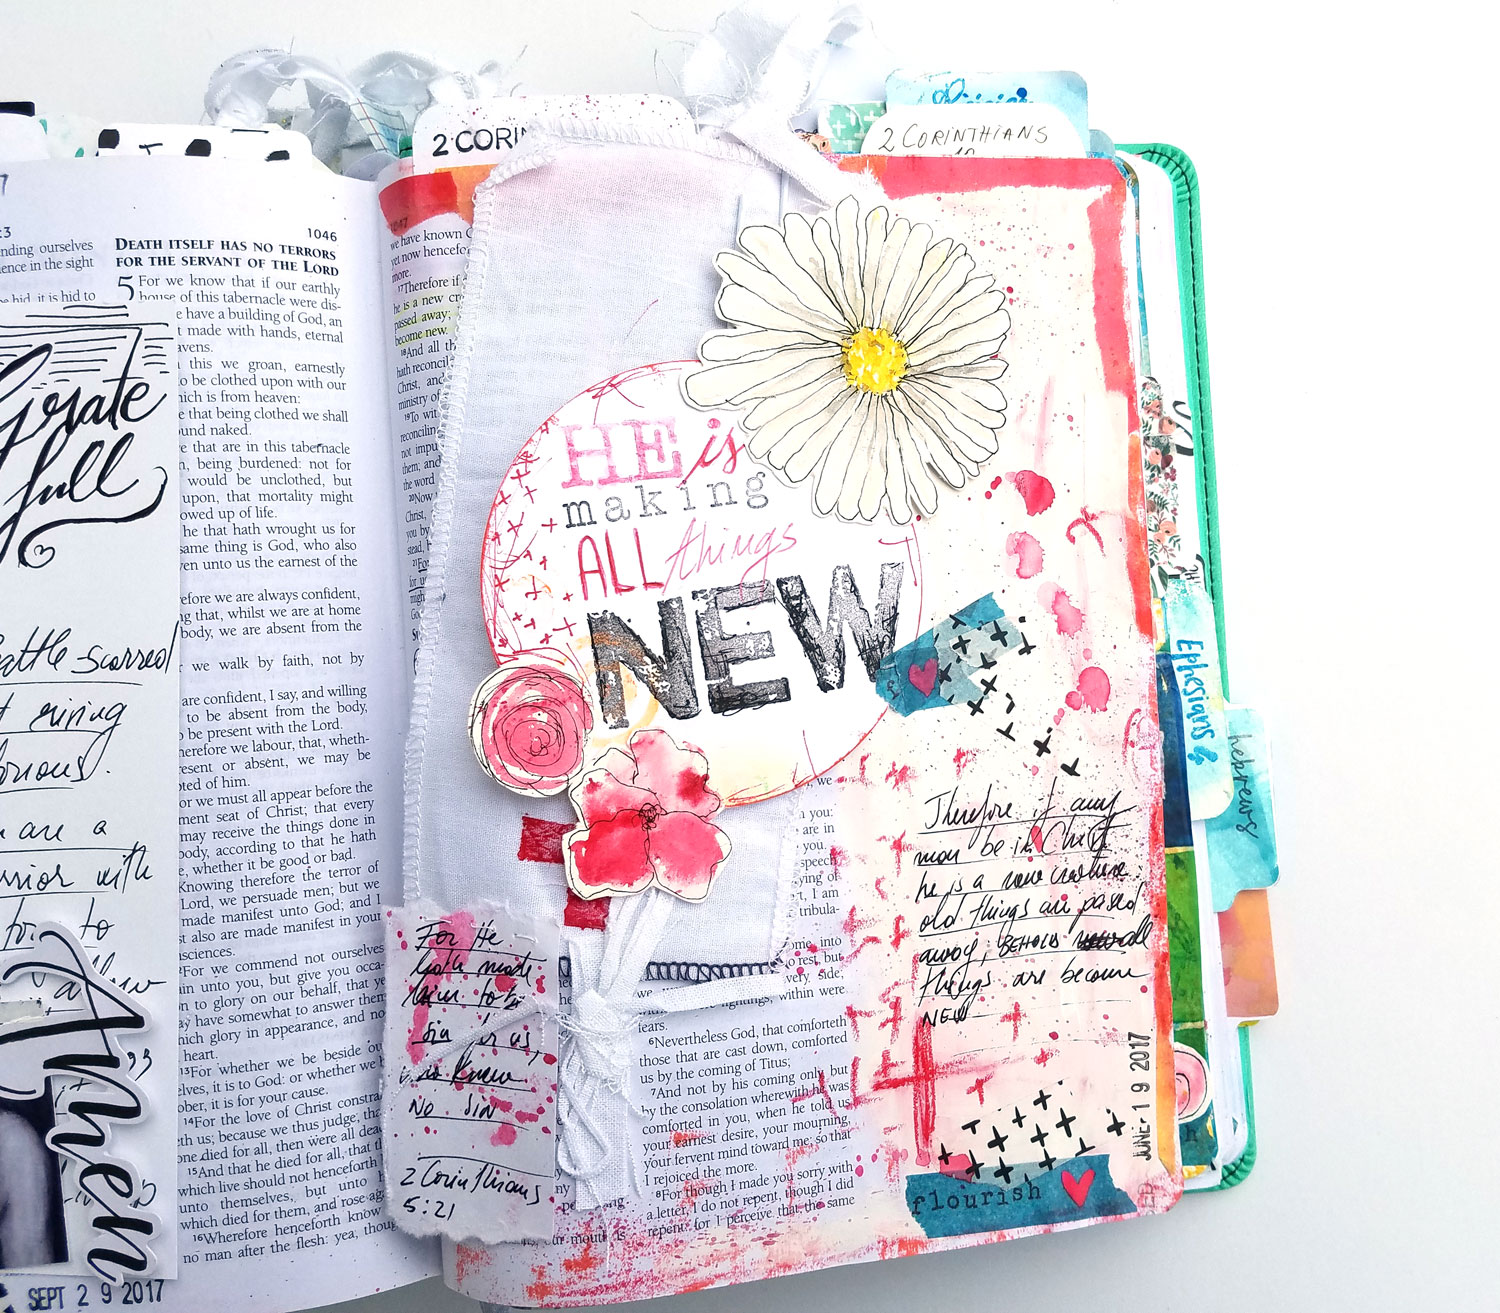 2 CORIN
2 CORINTHIANS
Ephesians &
hebrews
:3
nding ourselves
ience in the sight
hid, it is hid to
1046
DEATH ITSELF HAS NO TERRORS
FOR THE SERVANT OF THE LORD
5 For we know that if our earthly
house of this tabernacle were dis-
e have a building of God, an
t made with hands, eternal
avens.
this we groan, earnestly
o be clothed upon with our
hich is from heaven:
e that being clothed we shall
und naked.
e that are in this tabernacle
n, being burdened: not for
would be unclothed, but
upon, that mortality might
owed up of life.
he that hath wrought us for
same thing is God, who also
en unto us the earnest of the
efore we are always confident,
g that, whilst we are at home
body, we are absent from the
we walk by faith, not by
are confident, I say, and willing
to be absent from the body,
be present with the Lord.
herefore we labour, that, wheth-
resent or absent, we may be
ted of him.
or we must all appear before the
ment seat of Christ; that every
may receive the things done in
body, according to that he hath
, whether it be good or bad.
Knowing therefore the terror of
Lord, we persuade men; but we
made manifest unto God; and I
st also are made manifest in your
sciences.
For we commend not ourselves
in unto you, but give you occa-
n to glory on our behalf, that ye
y have somewhat to answer them
hich glory in appearance, and no
heart.
13For whether we be beside ou
elves, it is to God: or whether we b
ober, it is for your cause.
14For the love of Christ constra
th us; because we thus judge, tha
one died for all, then were all dea
15And that he died for all, that t
which live should not henceforth l
unto themselves, but unto h
which died for them, and rose aga
16Wherefore henceforth know
no man after the flesh: yea, thoug
Grate
full
battle-scarred
rising
are a
rrior with
to
Amen
SEPT 2 9 2017
1047
we have known C
yet now hencefo
more.
17Therefore if
he is a new cre
passed away;
become new.
18And all th
hath reconcil
Christ, and
ministry of
19To wit
reconcilin
not impu
them; and
the word
20Now
Christ,
you by
stead,
HE is
making
ALL things
NEW
For He
hath made
him to be
sin for us,
who knew
NO sin
2 Corinthians
5:21
, we
you:
are in
you.
speech
ying of
t, I am
tribula-
ome into
rest, but
very side;
fightings, within were
fears.
6Nevertheless God, that comforteth
those that are cast down, comforted
us by the coming of Titus;
7And not by his coming only, but
by the consolation wherewith he was
comforted in you, when he told us
your earnest desire, your mourning,
your fervent mind toward me; so that
I rejoiced the more.
8For though I made you sorry with
a letter, I do not repent, though I did
repent: for I perceive that the same
Therefore if any
man be in Christ
he is a new creature:
old things are passed
away; BEHOLD all
things are become
NEW
JUNE 1 9 2017
flourish